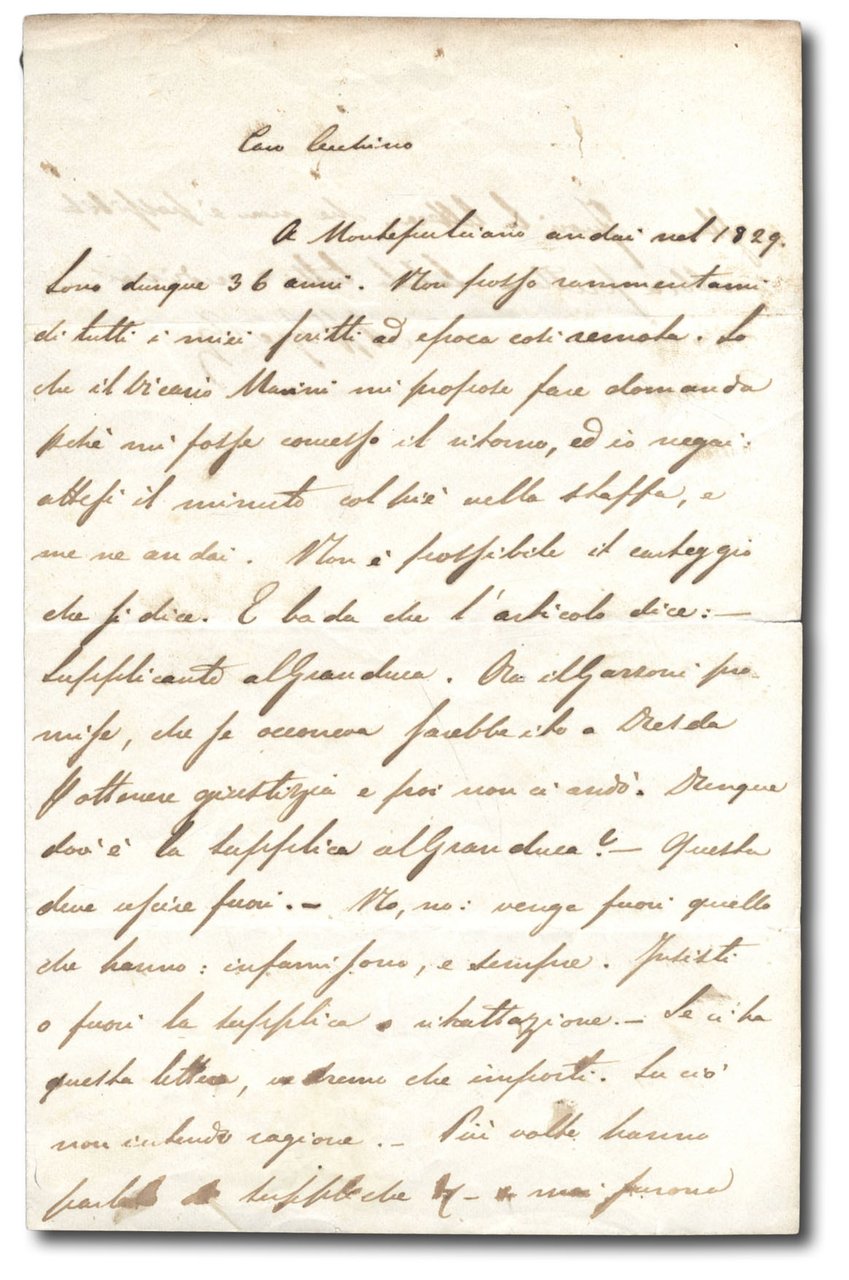 Caro Cecchino
A Montepulciano andai nel 1829.
Sono dunque 36 anni. Non posso rammentami
di tutti i miei scritti ad epoca così remota. So
che il Vicario Marini mi propose fare domanda
pchè mi fosse concesso il ritorno, ed io negai:
attesi il minuto col piè nella staffa, e
me ne andai. Non è possibile il carteggio
che si dice. E bada che l'articolo dice: —
supplicante al Granduca. Ora il Garzoni pro
mise, che se occorreva sarebbe ito a Dresda
p ottenere giustizia e poi non ci andò. Dunque
dov'è la supplica al Granduca? — Questa
deve uscire fuori. — No, no: venga fuori quello
che hanno: infami sono, e sempre. Insisti
o fuori la supplica o ritrattazione. — Se ci ha
questa lettera, vedremo che importi. Su ciò
non intendo ragione. — Più volte hanno
suppliche mai furono